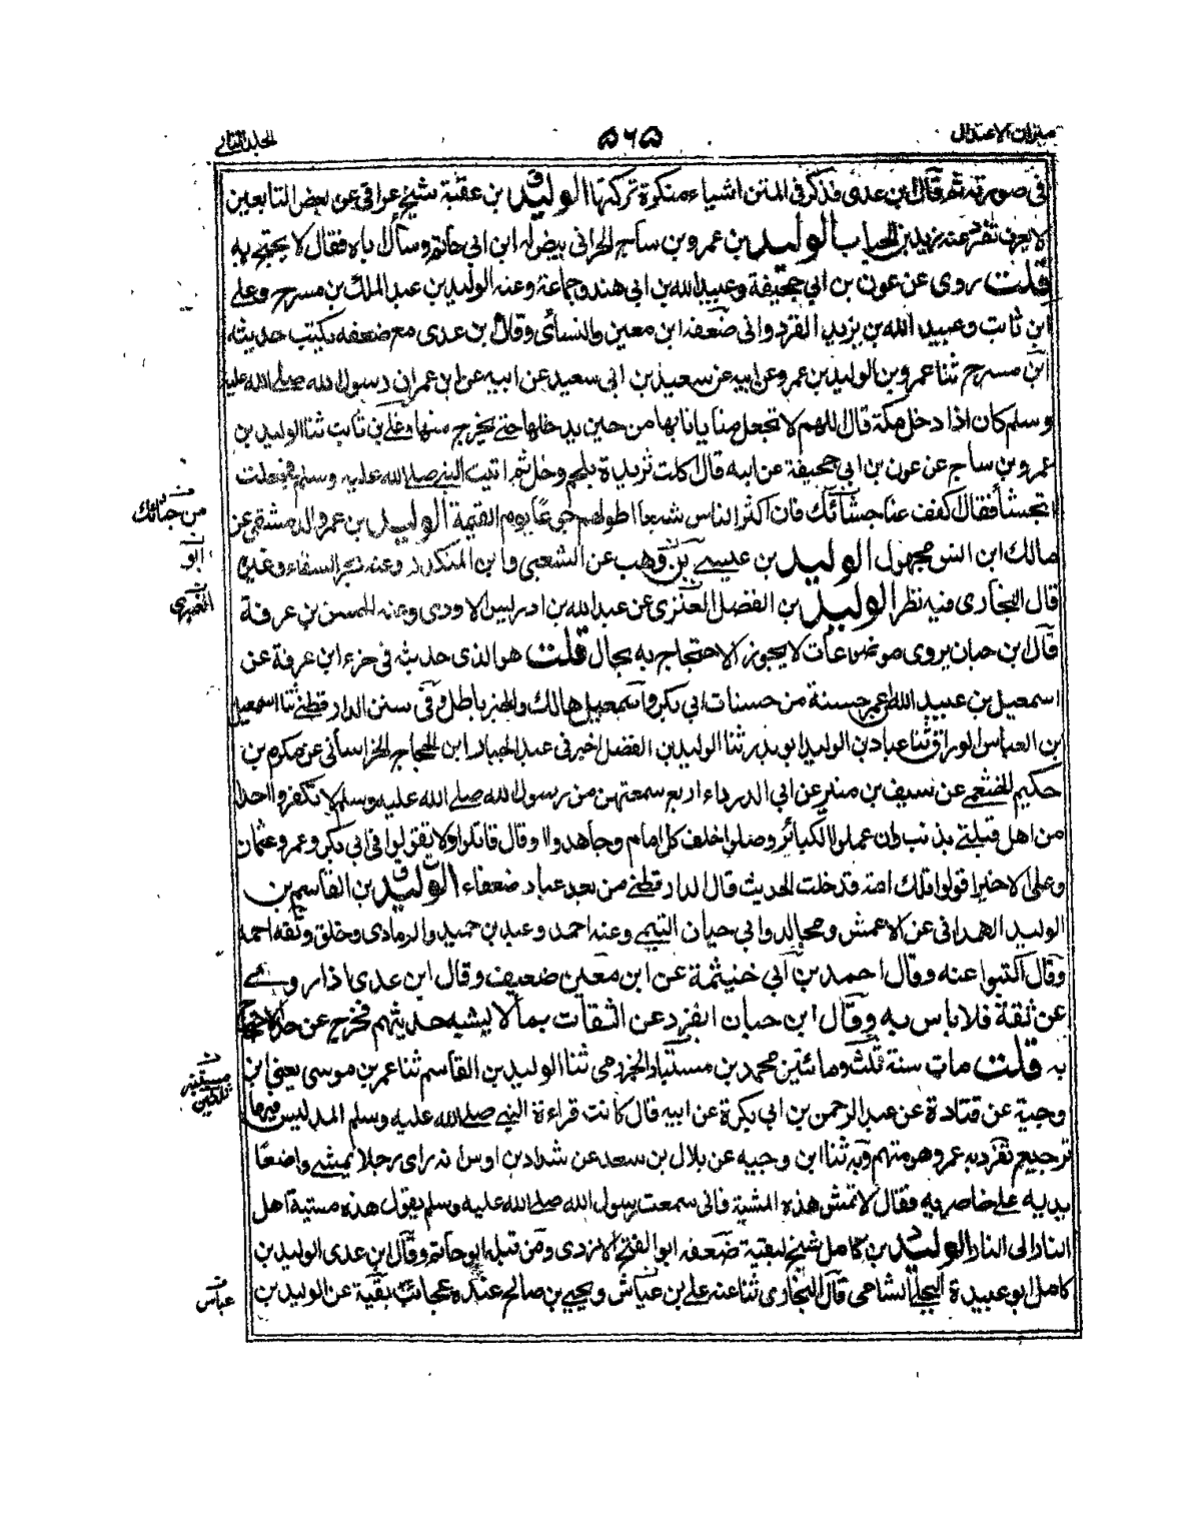 ميزان الاعتدال
٥٦٥
الجلد الثاني
في صورته ثم قال ابن عدي فذكر في المتن اشياء منكرة تركتها الوليد بن عقبة شيخ عراقي عن بعض التابعين
لا يعرف تفرد عنه يزيد بن الحباب الوليد بن عمرو بن ساج الحراني بيض له ابن ابي حاتم وسأل اباه فقال لا يحتج به
قلت روى عن عون بن ابي جحيفة وعبيد الله بن ابي هند وجماعة وعنه الوليد بن عبد الملك بن مسرح وعلي
ابن ثابت وعبيد الله بن يزيد القردواني ضعفه ابن معين والنسائي وقال بن عدي مع ضعفه يكتب حديثه
ابن مسرح ثنا عمرو بن الوليد بن عمرو عن ابيه عن سعيد بن ابي سعيد عن ابيه عن ابن عمر ان رسول الله صلى الله عليه
وسلم كان اذا دخل مكة قال اللهم لا تجعل منايانا بها من حين يدخلها حتى يخرج منها وعلي بن ثابت ثنا الوليد بن
عمرو بن ساج عن عون بن ابي جحيفة عن ابيه قال اكلت ثريدة بلحم وخل ثم اتيت النبي صلى الله عليه وسلم فجعلت
اتجشأ فقال اكفف عنا جشائك فان اكثر الناس شبعا اطولهم جوعا يوم القيمة الوليد بن عمرو الدمشقي عن
مالك ابن انس مجهول الوليد بن عيسى بن وهب عن الشعبي وابن المنكدر وعنه بحر السقاء وغيره
قال البخاري فيه نظر الوليد بن الفضل العنزي عن عبد الله بن ادريس الاودي وعنه الحسن بن عرفة
قال ابن حبان يروي موضوعات لا يجوز الاحتجاج به بحال قلت هو الذي حديثه في جزء ابن عرفة عن
اسمعيل بن عبيد الله ان عمر حسنة من حسنات ابي بكر واسمعيل هالك والخبر باطل وفي سنن الدارقطني ثنا اسمعيل
بن العباس الوراق ثنا عباد بن الوليد ابو بدر ثنا الوليد بن الفضل اخبرني عبد الجبار ابن الحجاج الخراساني عن مكرم بن
حكيم الخثعمي عن سيف بن منير عن ابي الدرداء اربع سمعتهن من رسول الله صلى الله عليه وسلم لا تكفروا احدا
من اهل قبلتي بذنب وان عملوا الكبائر وصلوا خلف كل امام وجاهدوا او قال قاتلوا ولا تقولوا في ابي بكر وعمر وعثمان
وعلي الا خيرا قولوا تلك امة قد خلت الحديث قال الدارقطني من بعد عباد ضعفاء الوليد بن القاسم بن
الوليد الهمداني عن الاعمش ومجالد وابي حيان التيمي وعنه احمد وعبد بن حميد والرمادي وخلق وثقه احمد
وقال اكتبوا عنه وقال احمد بن ابي خيثمة عن ابن معين ضعيف وقال ابن عدي اذا روى
عن ثقة فلا باس به وقال ابن حبان انفرد عن الثقات بما لا يشبه حديثهم فخرج عن حد الاحتجاج
به قلت مات سنة ثلث ومائتين محمد بن مستنباد الخزرجي ثنا الوليد بن القاسم ثنا عمر بن موسى يعني ابن
وجيه عن قتادة عن عبد الرحمن بن ابي بكرة عن ابيه قال كانت قراءة النبي صلى الله عليه وسلم المد ليس فيها
ترجيع تفرد به عمر وهو متهم وبه ثنا ابن وجيه عن بلال بن سعد عن شداد بن اوس انه راى رجلا يمشي واضعا
يديه على خاصرتيه فقال لا تمش هذه المشية فاني سمعت رسول الله صلى الله عليه وسلم يقول هذه مشية اهل
النار الى النار الوليد بن كامل شيخ لبقية ضعفه ابو الفتح الازدي ومن قبله ابو حاتم وقال ابن عدي الوليد بن
كامل ابو عبيدة البجلي الشامي قال البخاري ثنا عنه علي بن عياش ويحيى بن صالح عنده عجائب بقية عن الوليد بن
من جشائك
ابو
عباس